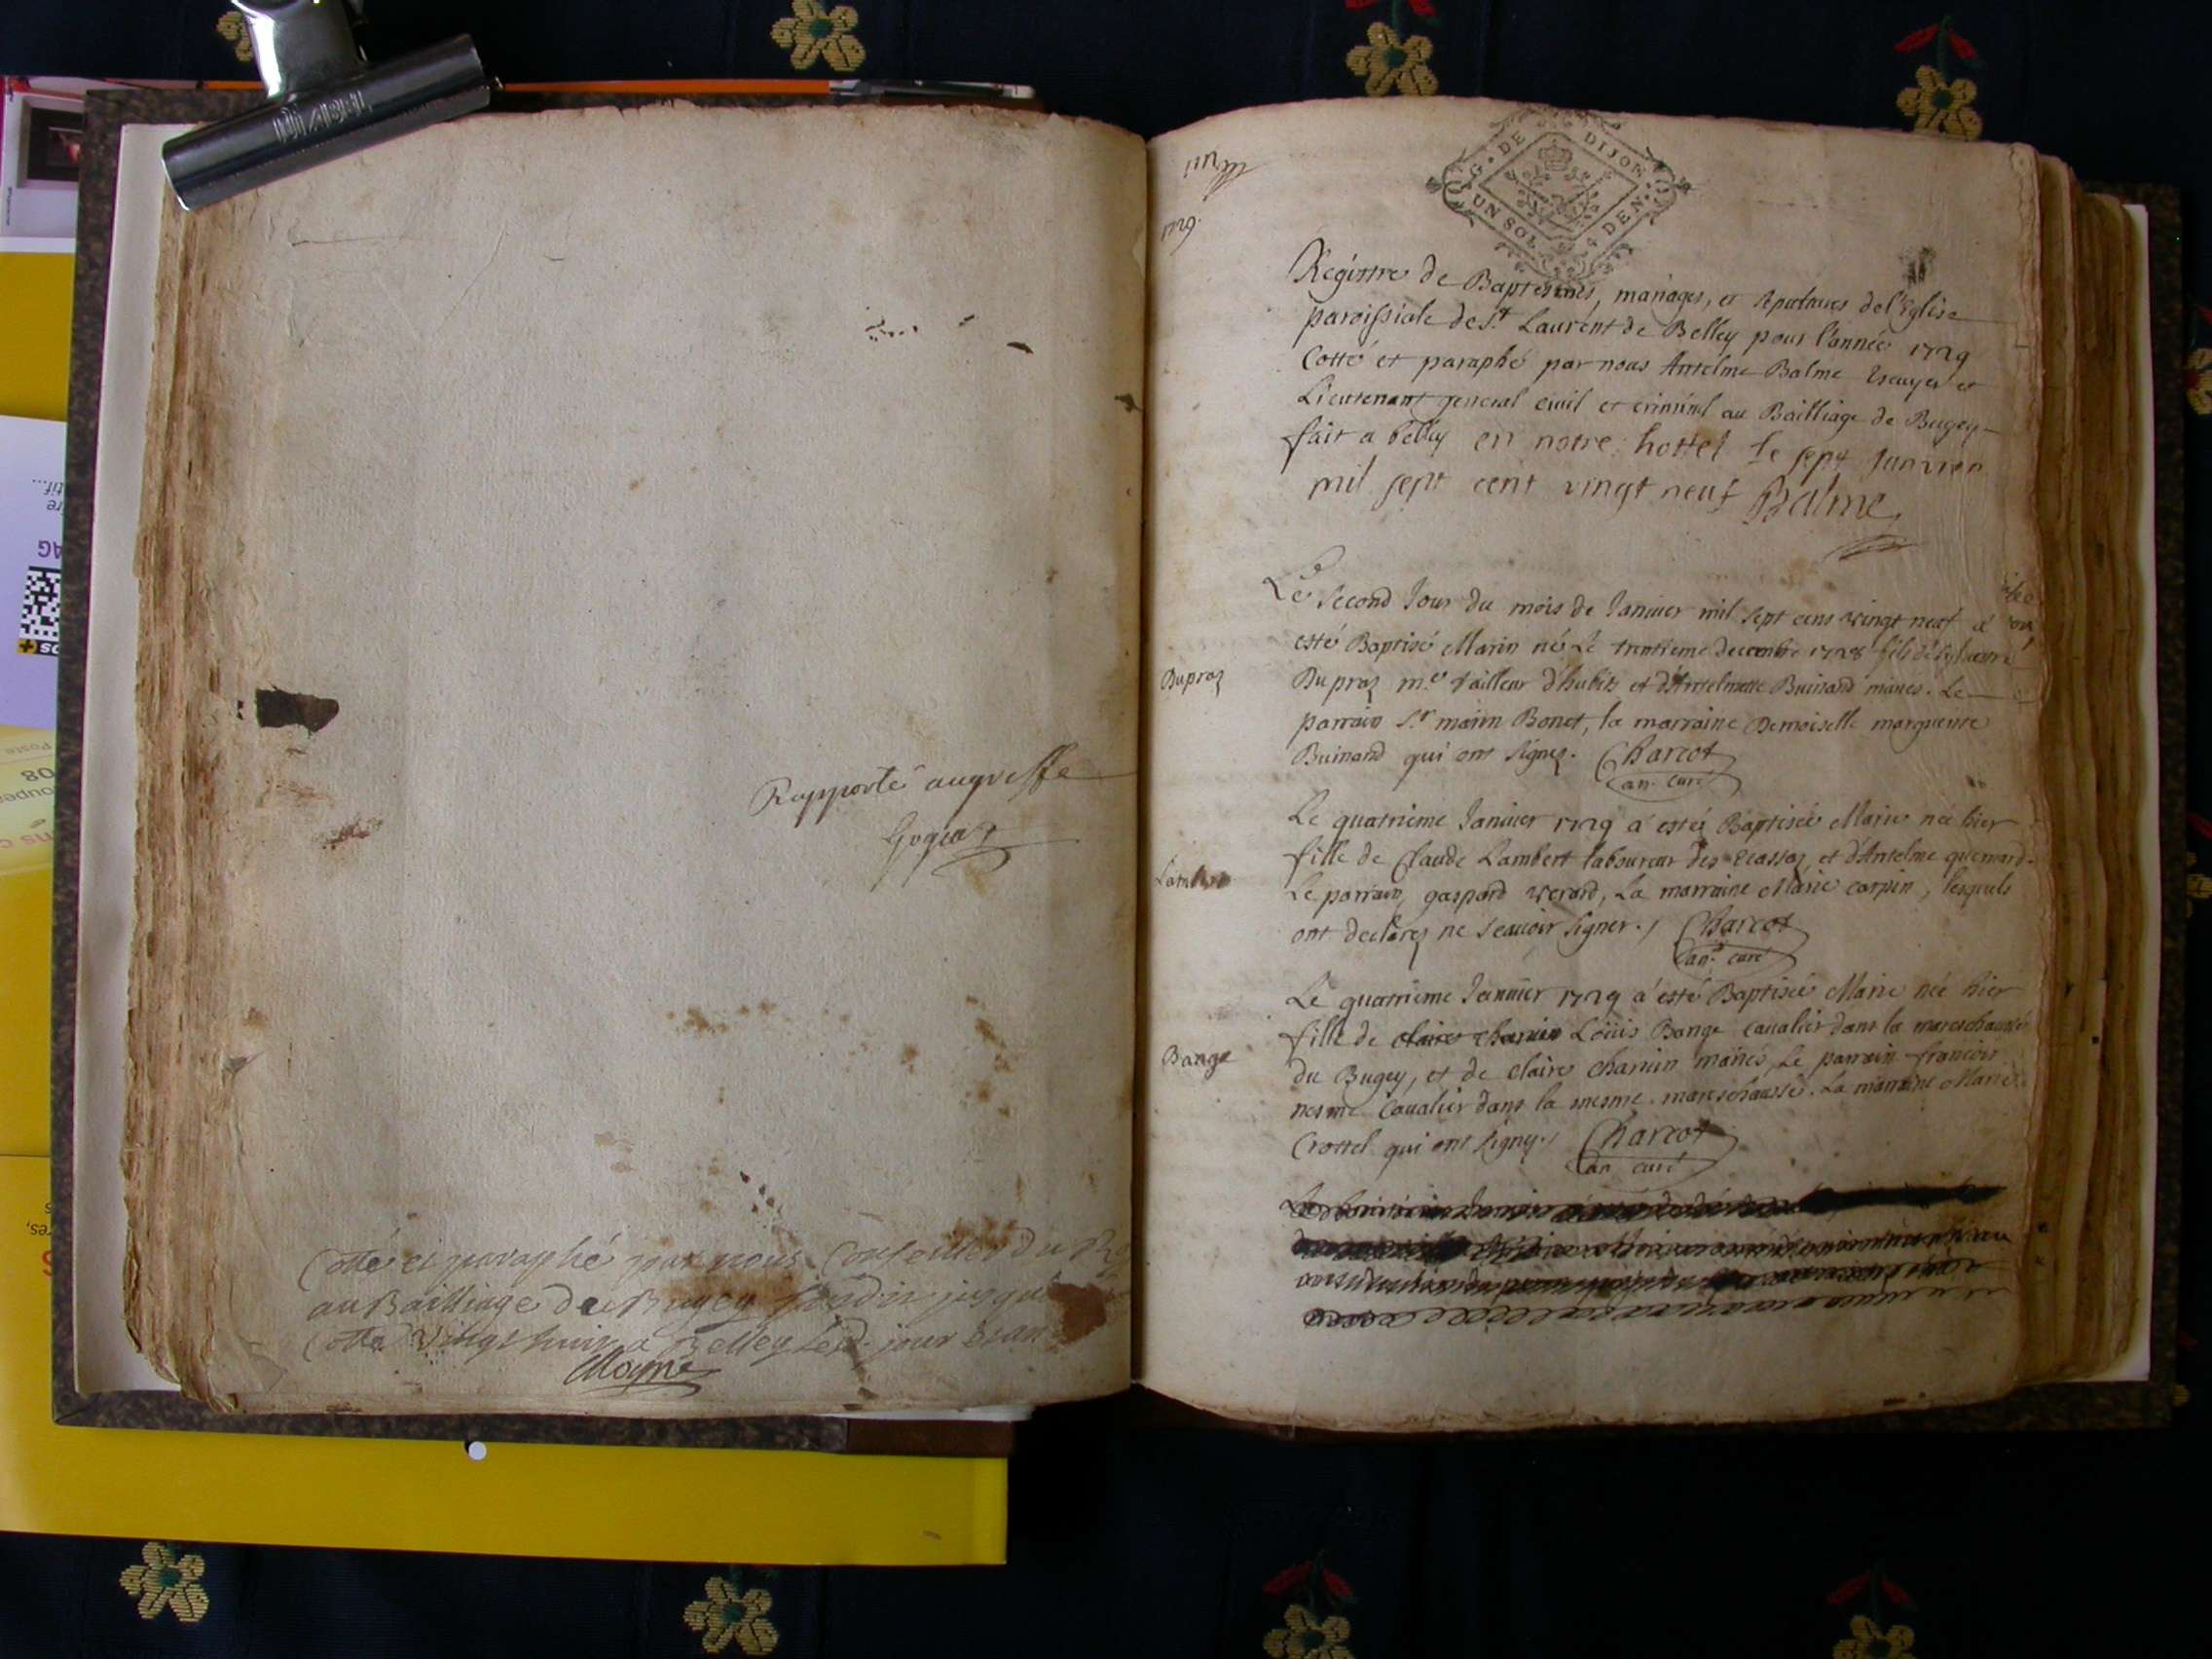 Rapporté au greffe
Cotté et paraphé par nous Conseiller du
au Bailliage de Bugey
Cotte vingt huit a Belley le jour
Moyne
1729.
G. DE DIJON
UN SOL 4 DEN.
Registre de Baptesmes, mariages, et sepultures de l'Eglise
paroissiale de St. Laurent de Belley pour l'année 1729
Cotté et paraphé par nous Antelme Balme Escuyer et
Lieutenant general civil et criminel au Bailliage de Bugey
fait a belley en notre hottel le sept Janvier
mil sept cent vingt neuf Balme
Le second Jour du mois de Januier mil sept cens vingt neuf a
esté Baptisé Marin né Le trentieme decembre 1728 fils de Syluestre
Dupraz
Dupraz me. tailleur d'habits et d'Antelmette Buinand mariés. Le
parrain Sr. marin Bonet, la marraine Demoiselle marguerite
Buinand qui ont signez. Charcot
an. curé
Le quatrieme Januier 1729 a esté Baptisée Marie née hier
fille de Claude Lambert laboureur des Ecassaz, et d'Antelme quemard.
Lambert
Le parrain gaspard verard, La marraine Marie carpin, lesquels
ont declarez ne scauoir signer./ Charcot
an. curé
Le quatrieme Januier 1729 a esté Baptisée Marie née hier
fille de claire charuin Loüis Bange caualier dans la mareschaussée
Bange
du Bugey, et de claire charuin mariés, Le parrain francois
nesme Caualier dans la mesme mareschaussée. La marraine Marie
Crottel qui ont signez./ Charcot
an curé